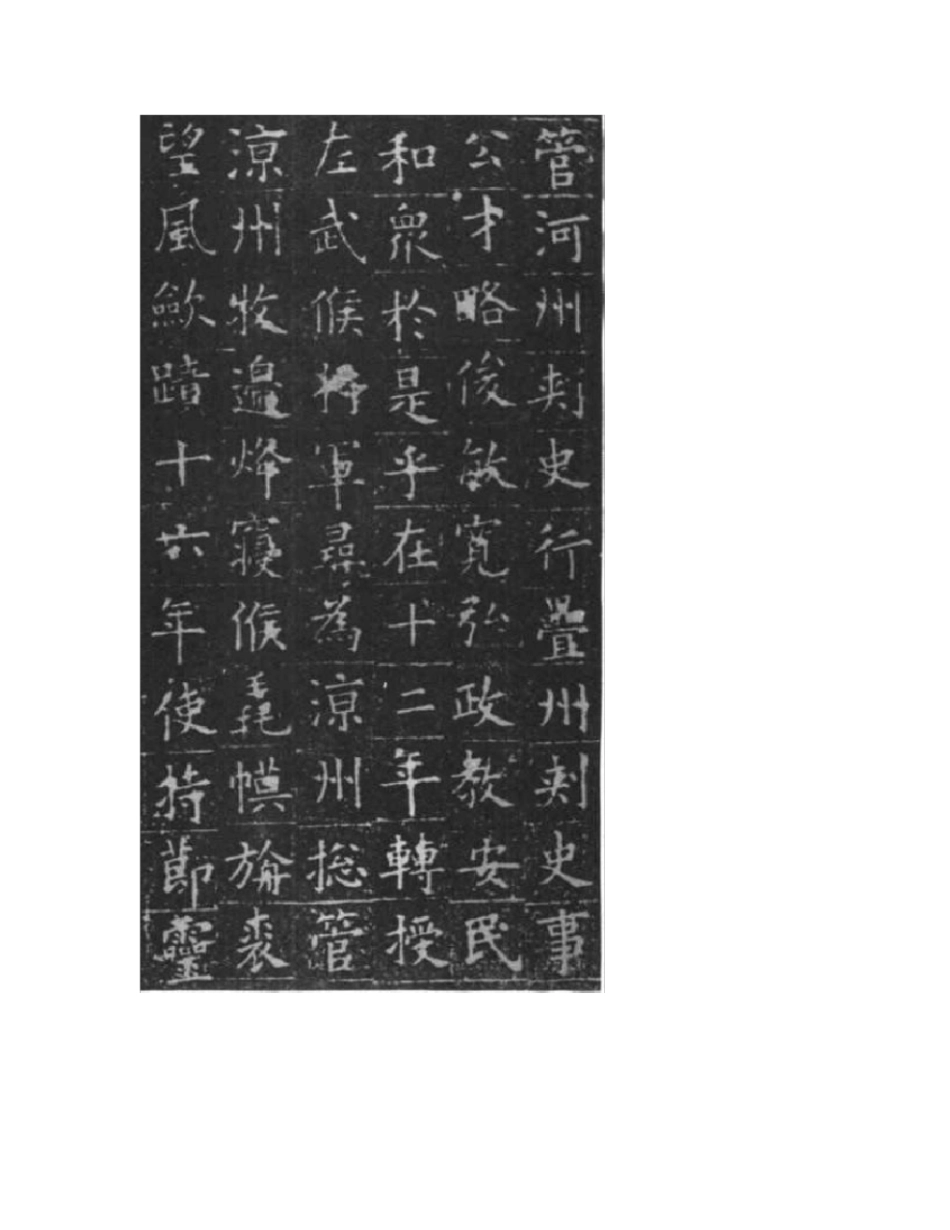 管河州刾史行疊州刾史事
公才略俊敏寬弘政教安民
和衆於是乎在十二年轉授
左武候將軍尋為涼州揔管
涼州牧邉烽寢候毳幙旃裘
望風歛蹟十六年使持節靈